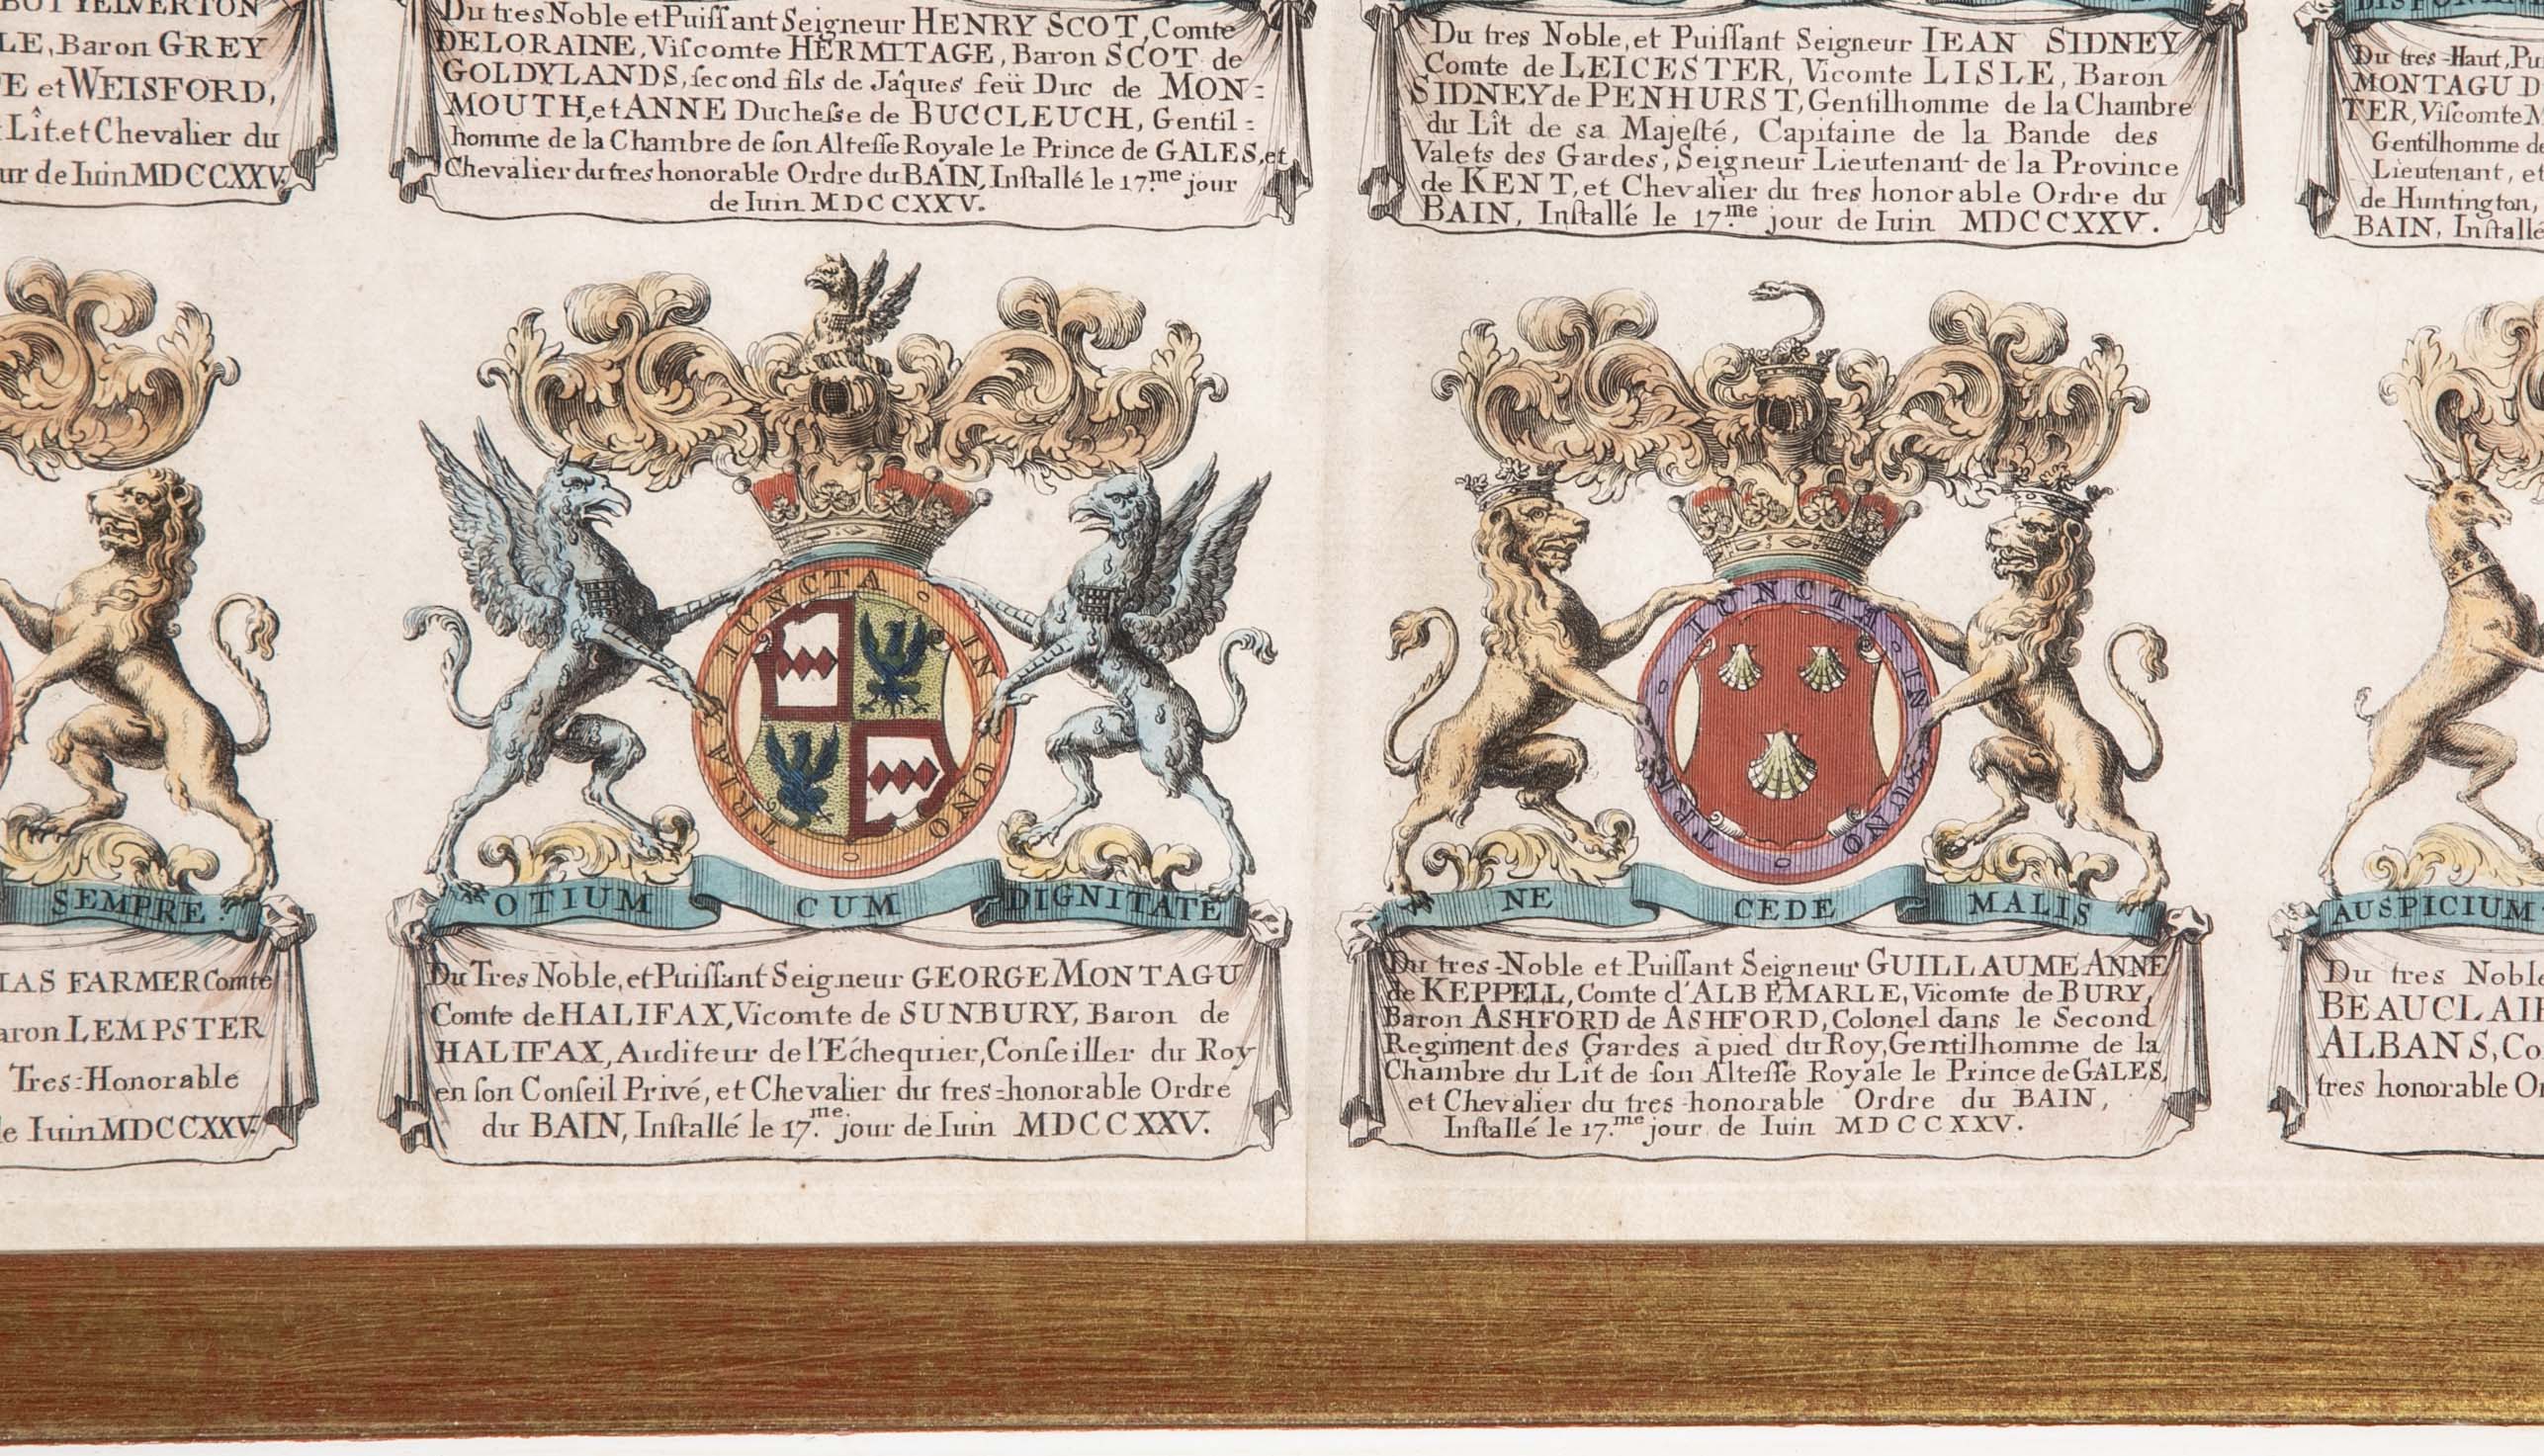 YELVERTON
LE, Baron GREY
E et WEISFORD,
Lît. et Chevalier du
ur de Iuin MDCCXXV.
Du tres Noble et Puiſſant Seigneur HENRY SCOT, Comte
DELORAINE, Viſcomte HERMITAGE, Baron SCOT de
GOLDYLANDS, ſecond fils de Jaques feü Duc de MON-
MOUTH, et ANNE Ducheſse de BUCCLEUCH, Gentil-
homme de la Chambre de ſon Alteſſe Royale le Prince de GALES, et
Chevalier du tres honorable Ordre du BAIN, Inſtallé le 17.me jour
de Iuin MDCCXXV.
Du tres Noble, et Puiſſant Seigneur IEAN SIDNEY
Comte de LEICESTER, Vicomte LISLE, Baron
SIDNEY de PENHURST, Gentilhomme de la Chambre
du Lît de sa Majeſté, Capitaine de la Bande des
Valets des Gardes, Seigneur Lieutenant de la Province
de KENT, et Chevalier du tres honorable Ordre du
BAIN, Inſtallé le 17.me jour de Iuin MDCCXXV.
Du tres-Haut, Pu
MONTAGU D
TER, Viſcomte M
Gentilhomme de
Lieutenant, et
de Huntington,
BAIN, Inſtallé
SEMPRE.
LAS FARMER Comte
aron LEMPSTER
Tres-Honorable
e Iuin MDCCXXV.
TRIA IUNCTA IN UNO
OTIUM CUM DIGNITATE
Du Tres Noble, et Puiſſant Seigneur GEORGE MONTAGU
Comte de HALIFAX, Vicomte de SUNBURY, Baron de
HALIFAX, Auditeur de l'Echequier, Conſeiller du Roy
en ſon Conſeil Privé, et Chevalier du tres-honorable Ordre
du BAIN, Inſtallé le 17.me jour de Iuin MDCCXXV.
TRIA IUNCTA IN UNO
NE CEDE MALIS
Du tres-Noble et Puiſſant Seigneur GUILLAUME ANNE
de KEPPELL, Comte d'ALBEMARLE, Vicomte de BURY,
Baron ASHFORD de ASHFORD, Colonel dans le Second
Regiment des Gardes à pied du Roy, Gentilhomme de la
Chambre du Lit de ſon Alteſſe Royale le Prince de GALES,
et Chevalier du tres-honorable Ordre du BAIN,
Inſtallé le 17.me jour de Iuin MDCCXXV.
AUSPICIUM
Du tres Noble
BEAUCLAIR
ALBANS, Co
tres honorable Or